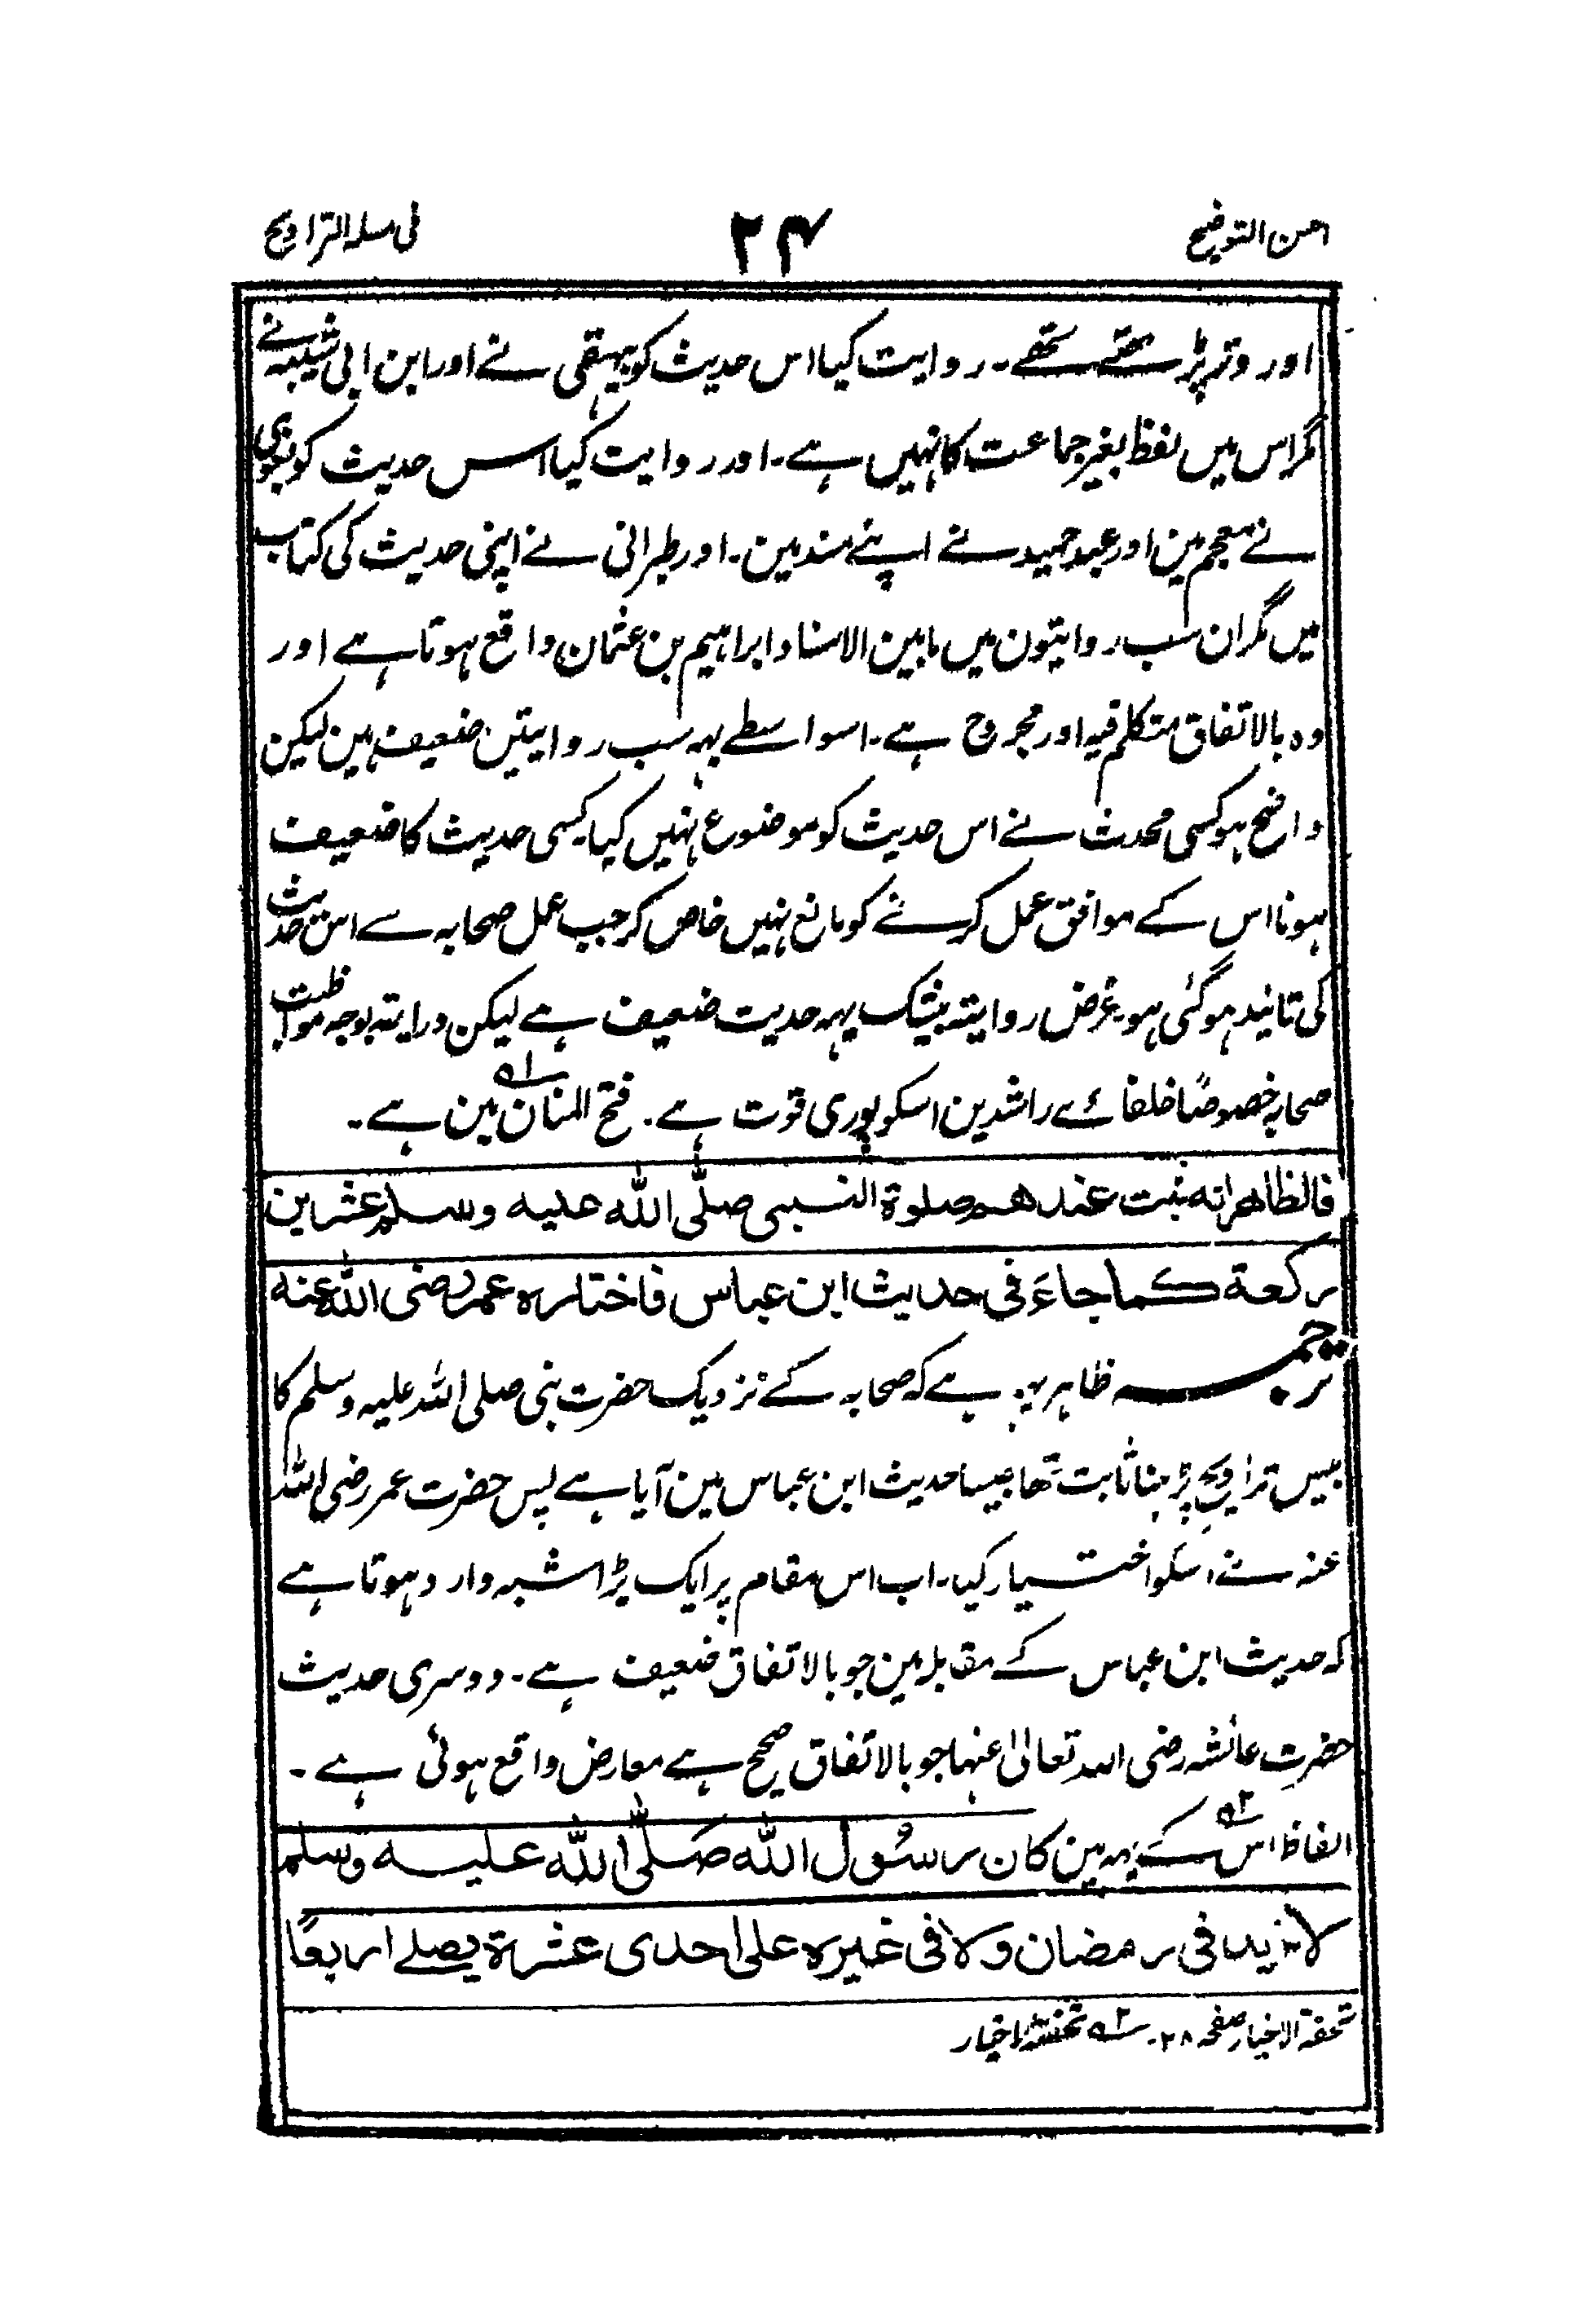 احسن التوضیح
۲۴
فی مسلہ التراویح
اور وتر پڑھتے تھے۔ روایت کیا اس حدیث کو بیہقی نے اور ابن ابی شیبہ نے
مگر اس میں لفظ بغیر جماعت کا نہیں ہے۔ اور روایت کیا اس حدیث کو بغوی
نے معجم مین اور عبد حمید نے اپنے مسند مین۔ اور طبرانی نے اپنی حدیث کی کتاب
میں مگر ان سب روایتون میں مابین الاسناد ابراہیم بن عثمان واقع ہوتا ہے اور
وہ بالاتفاق متکلم فیہ اور مجروح ہے۔ اسواسطے یہہ سب روایتیں ضعیف ہین لیکن
واضح ہو کسی محدث نے اس حدیث کو موضوع نہیں کہا۔ کیسی حدیث کا ضعیف
ہونا اس کے موافق عمل کرنے کو مانع نہیں خاص کر جب عمل صحابہ سے اس حدیث
کی تائید ہوگئی ہو۔ غرض روایتہ بیشک یہہ حدیت ضعیف ہے لیکن درایتہ بوجہ مواظبت
صحابہ خصوصًا خلفائے راشدین اسکو پوری قوت ہے۔ فتح المنان ؎۱ مین ہے۔
فالظاهر انه ثبت عندهم صلوة النبی صلّی اللّٰه علیه وسلم عشرین
رکعة کما جاءَ فی حدیث ابن عباس فاختاره عمر رضی اللّٰه عنه
ترجمہ ظاہر یہہ ہے کہ صحابہ کے نزدیک حضرتِ نبی صلی اللہ علیہ وسلم کا
بیس تراویح پڑہنا ثابت تھا جیسا حدیث ابن عباس مین آیا ہے پس حضرت عمر رضی اللہ
عنہ نے اسکو اختیار کیا۔ اب اس مقام پر ایک بڑا شبہ وارد ہوتا ہے
کہ حدیث ابن عباس کے مقابلہ مین جو بالاتفاق ضعیف ہے۔ دوسری حدیث
حضرتِ عائشہ رضی اللہ تعالیٰ عنہا جو بالاتفاق صحیح ہے معارض واقع ہوئی ہے۔
الفاظ اس ؎۲ کے یہہ ہین کان رسُول اللّٰه صَلّی اللّٰه علیه وسلم
لا یزید فی رمضان ولا فی غیره علی احدی عشرة یصلے اربعًا
تحفة الاخیار صفحہ ۲۸۔ ؎۲ تحفة الاخیار